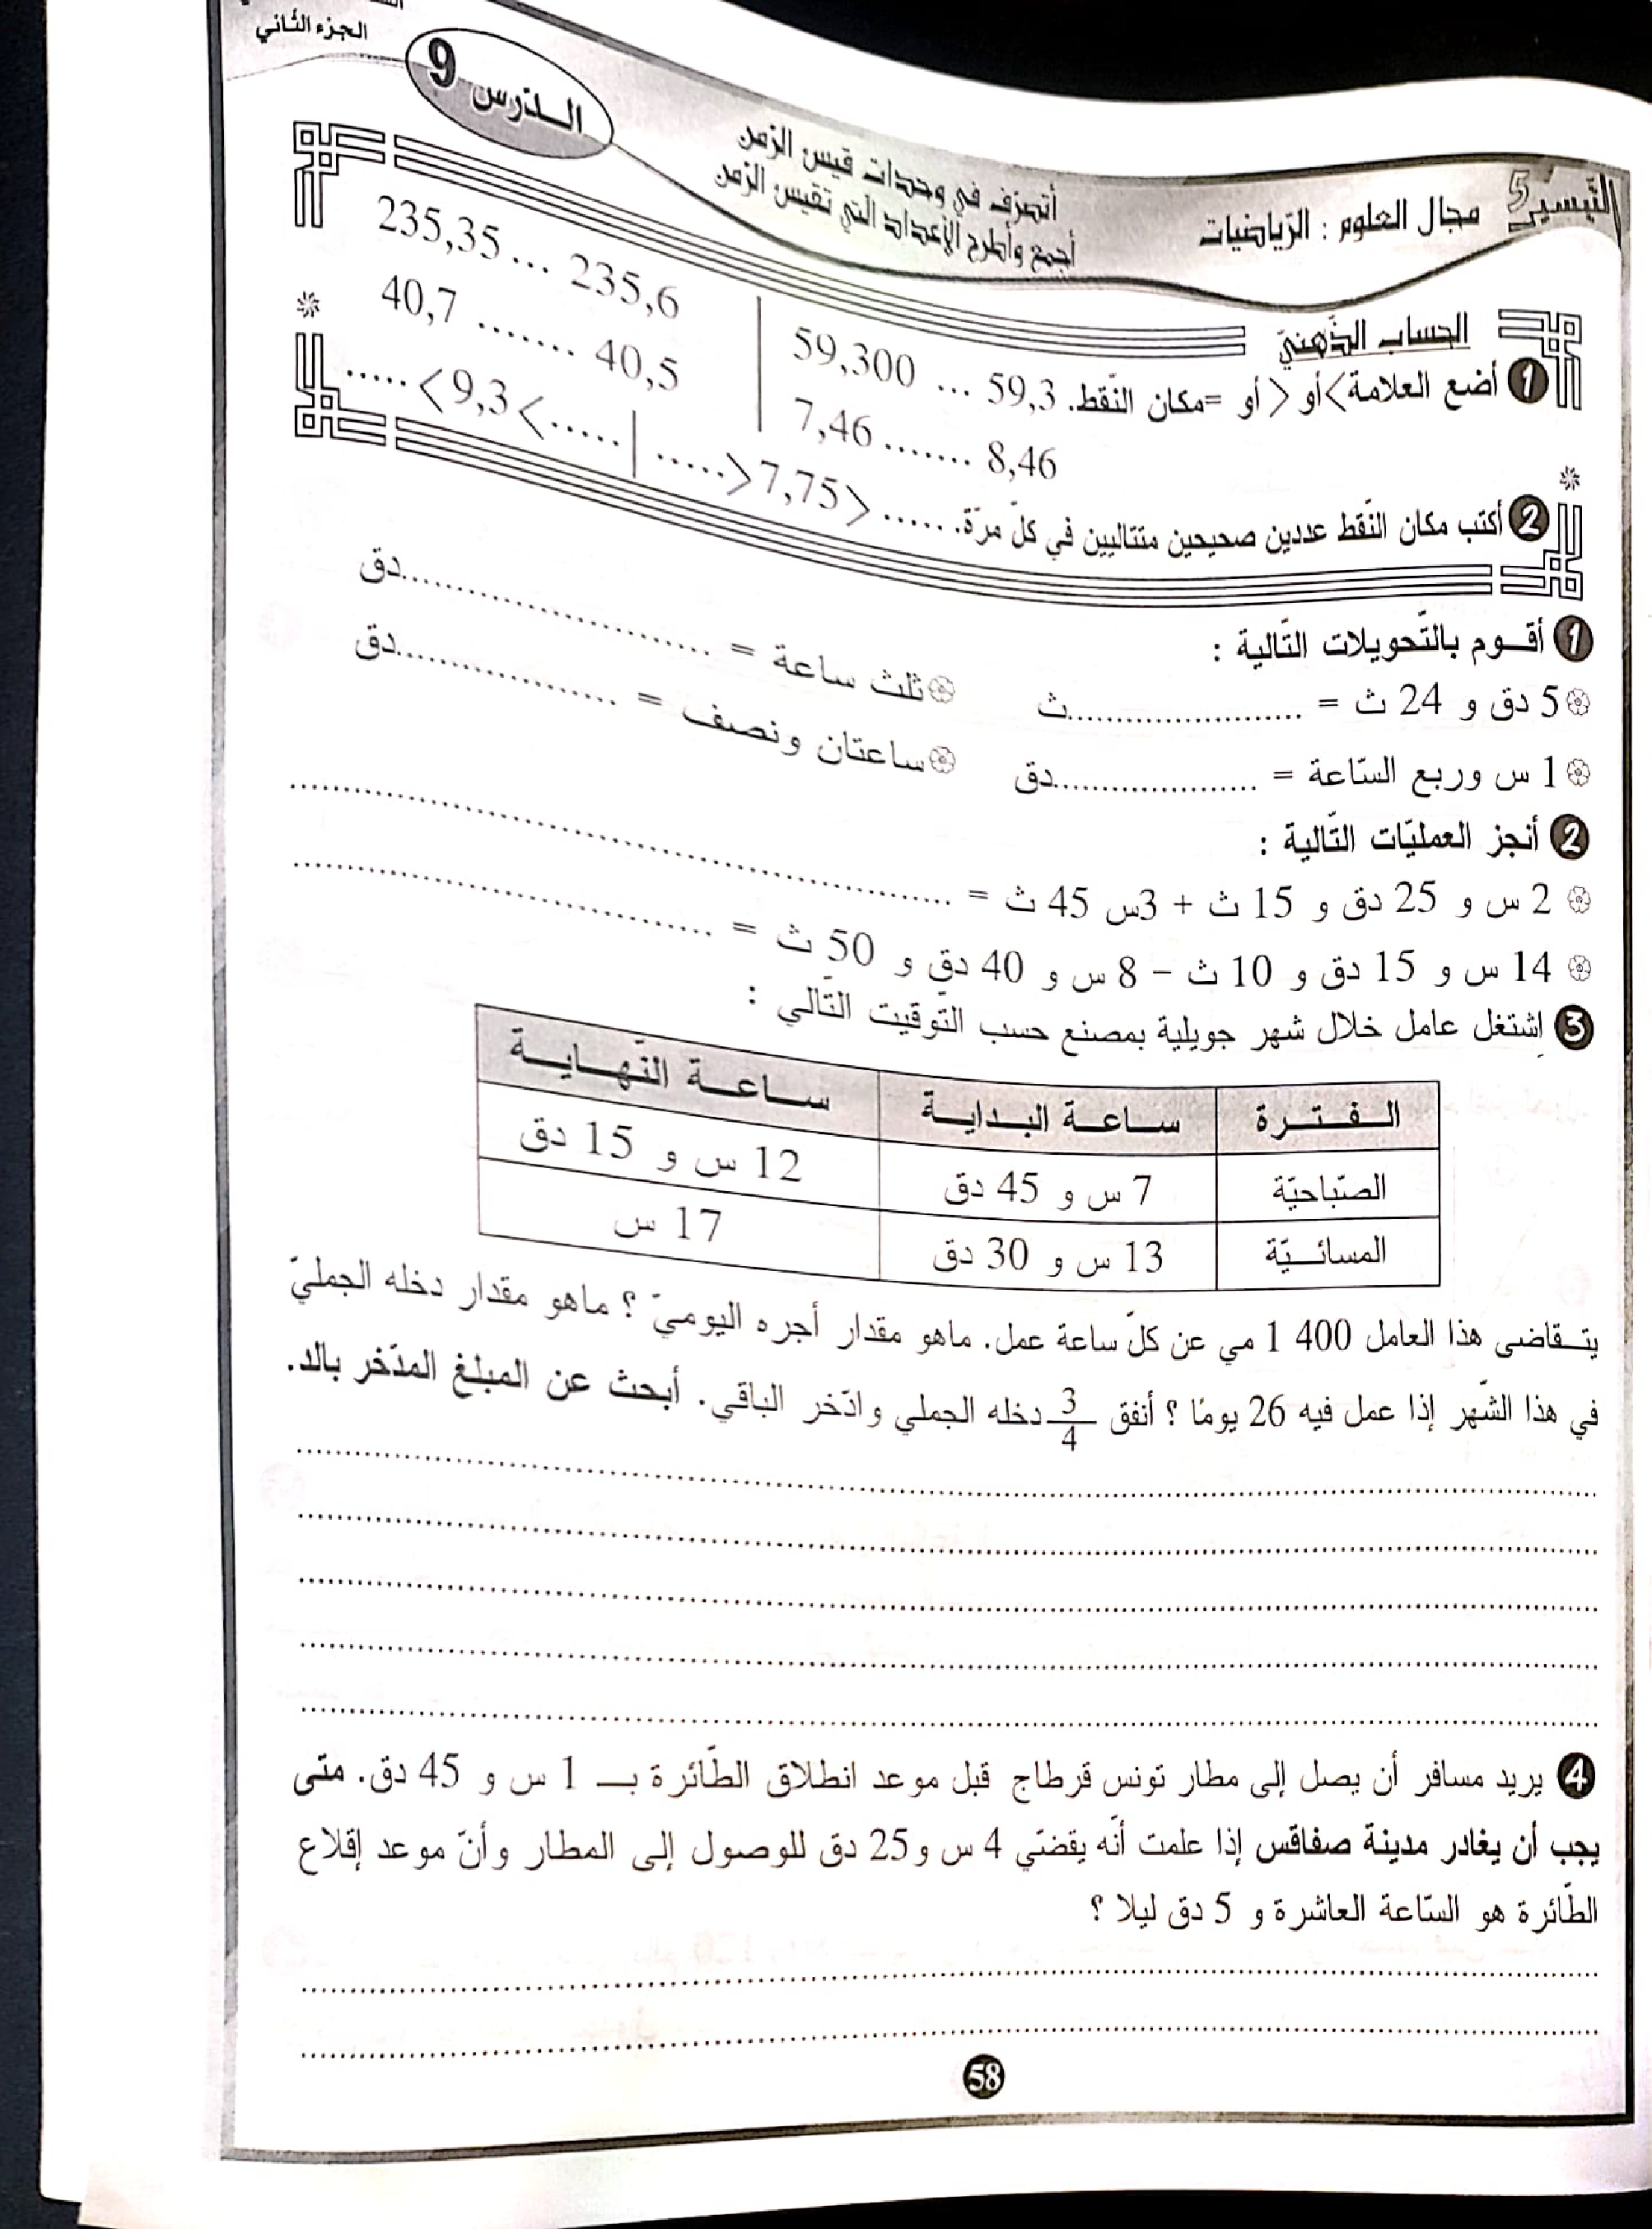 الجزء الثاني
الدرس 9
التيسير 5 مجال العلوم : الرّياضيات
أتصرّف في وحدات قيس الزمن
أجمع وأطرح الأعداد التي تقيس الزمن
الحساب الذّهنيّ
❶ أضع العلامة > أو < أو = مكان النّقط. 59,3 ... 59,300 | 235,6 ... 235,35
8,46 ....... 7,46 | 40,5 ....... 40,7
❷ أكتب مكان النّقط عددين صحيحين متتاليين في كلّ مرّة. ..... < 7,75 < ..... | ..... > 9,3 > .....
❶ أقوم بالتّحويلات التّالية :
5 دق و 24 ث = ......................ث ثلث ساعة = ......................دق
1 س وربع السّاعة = ...................دق ساعتان ونصف = ...................دق
❷ أنجز العمليّات التّالية :
2 س و 25 دق و 15 ث + 3س 45 ث = ......................
14 س و 15 دق و 10 ث – 8 س و 40 دق و 50 ث = ......................
❸ إشتغل عامل خلال شهر جويلية بمصنع حسب التّوقيت التّالي :
الفترة ساعة البداية ساعة النّهاية
الصّباحيّة 7 س و 45 دق 12 س و 15 دق
المسائيّة 13 س و 30 دق 17 س
يتقاضى هذا العامل 400 1 مي عن كلّ ساعة عمل. ماهو مقدار أجره اليوميّ ؟ ماهو مقدار دخله الجمليّ
في هذا الشّهر إذا عمل فيه 26 يومًا ؟ أنفق 3/4 دخله الجملي وادّخر الباقي. أبحث عن المبلغ المدّخر بالد.
❹ يريد مسافر أن يصل إلى مطار تونس قرطاج قبل موعد انطلاق الطّائرة بـ 1 س و 45 دق. متى
يجب أن يغادر مدينة صفاقس إذا علمت أنّه يقضّي 4 س و 25 دق للوصول إلى المطار وأنّ موعد إقلاع
الطّائرة هو السّاعة العاشرة و 5 دق ليلا ؟
58